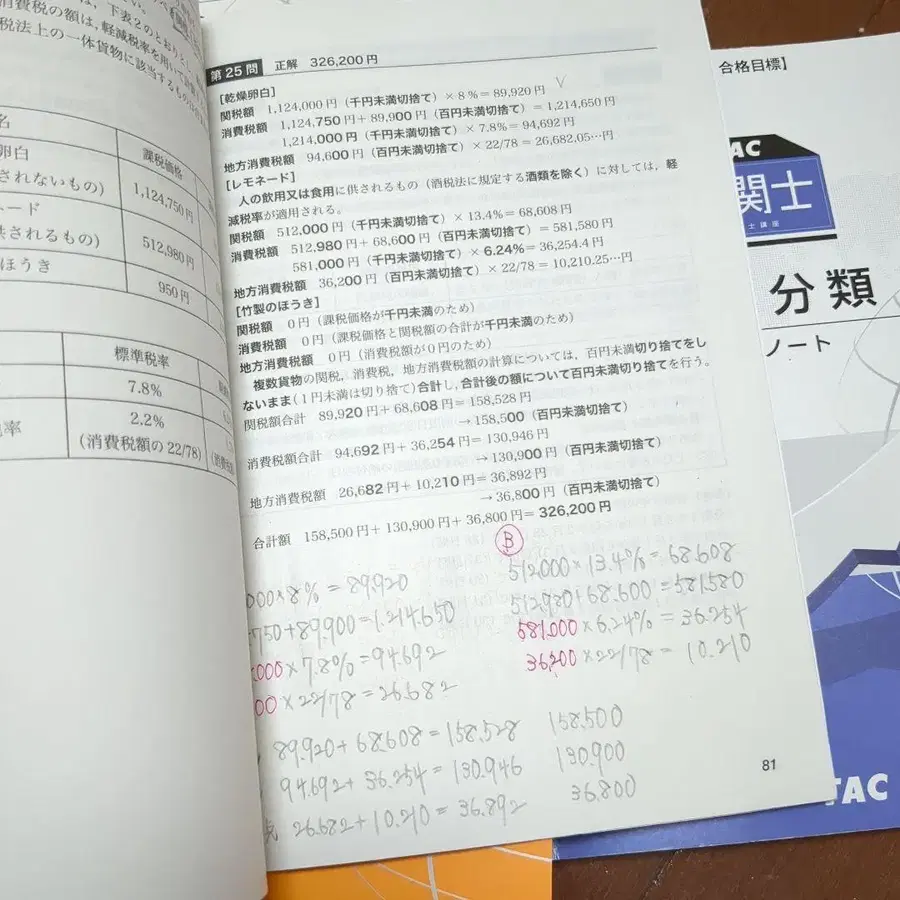 消費税の額は、軽減税率を用いて計算
税法上の一体貨物に該当するものは
は、下表2のとおりと
名
課税価格
卵白
されないもの)
1,124,750円
ード
供されるもの)
512,980円
ほうき
950円
標準税率
7.8%
率
2.2%
(消費税額の22/78)
第25問 正解 326,200円
[乾燥卵白]
関税額 1,124,000円(千円未満切捨て)×8%=89,920円
消費税額 1,124,750円+89,900円(百円未満切捨て)=1,214,650円
1,214,000円(千円未満切捨て)×7.8%=94,692円
地方消費税額 94,600円(百円未満切捨て)×22/78=26,682.05…円
[レモネード]
人の飲用又は食用に供されるもの(酒税法に規定する酒類を除く)に対しては,軽
減税率が適用される。
関税額 512,000円(千円未満切捨て)×13.4%=68,608円
消費税額 512,980円+68,600円(百円未満切捨て)=581,580円
581,000円(千円未満切捨て)×6.24%=36,254.4円
地方消費税額 36,200円(百円未満切捨て)×22/78=10,210.25…円
[竹製のほうき]
関税額 0円(課税価格が千円未満のため)
消費税額 0円(課税価格と関税額の合計が千円未満のため)
地方消費税額 0円(消費税額が0円のため)
複数貨物の関税,消費税,地方消費税額の計算については,百円未満切り捨てをし
ないまま(1円未満は切り捨て)合計し,合計後の額について百円未満切り捨てを行う。
関税額合計 89,920円+68,608円=158,528円
→158,500(百円未満切捨て)
消費税額合計 94,692円+36,254円=130,946円
→130,900円(百円未満切捨て)
地方消費税額 26,682円+10,210円=36,892円
→36,800円(百円未満切捨て)
合計額 158,500円+130,900円+36,800円=326,200円
000×8%=89.920
.750+89.900=1.214.650
.000×7.8%=94.692
00×22/78=26.682
B
512.000×13.4%=68.608
512.980+68.600=581.580
581.000×6.24%=36.254
36.200×22/78=10.210
89.920+68.608=158.528 158.500
94.692+36.254=130.946 130.900
26.682+10.210=36.892 36.800
81
合格目標】
TAC
関士
士講座
分類
ノート
TAC